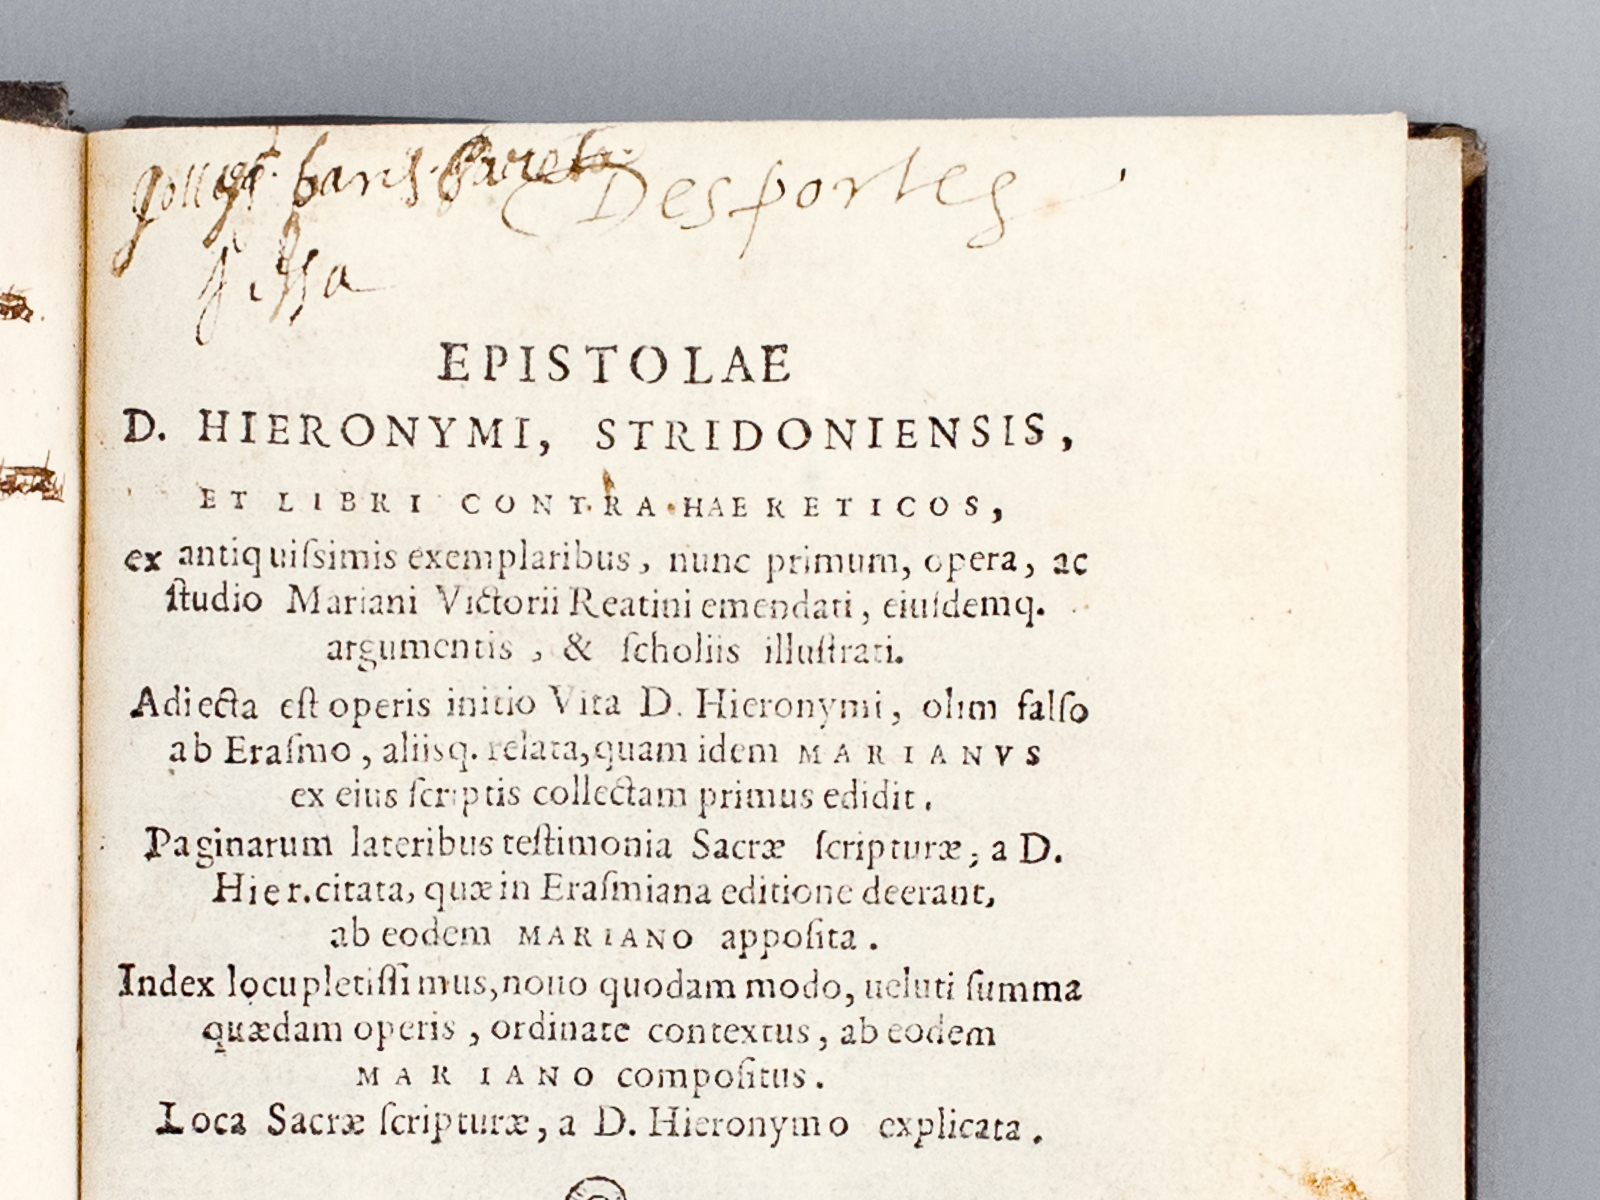 Desportes
EPISTOLAE
D. HIERONYMI, STRIDONIENSIS,
ET LIBRI CONTRA HAERETICOS,
ex antiquiſsimis exemplaribus, nunc primum, opera, ac
ſtudio Mariani Victorii Reatini emendati, eiuſdemq.
argumentis, & ſcholiis illuſtrati.
Adiecta eſt operis initio Vita D. Hieronymi, olim falſo
ab Eraſmo, aliisq. relata, quam idem MARIANVS
ex eius ſcriptis collectam primus edidit.
Paginarum lateribus teſtimonia Sacræ ſcripturæ; a D.
Hier. citata, quæ in Eraſmiana editione deerant,
ab eodem MARIANO appoſita.
Index locupletiſſimus, nouo quodam modo, ueluti ſumma
quædam operis, ordinate contextus, ab eodem
MARIANO compoſitus.
Loca Sacræ ſcripturæ, a D. Hieronymo explicata.